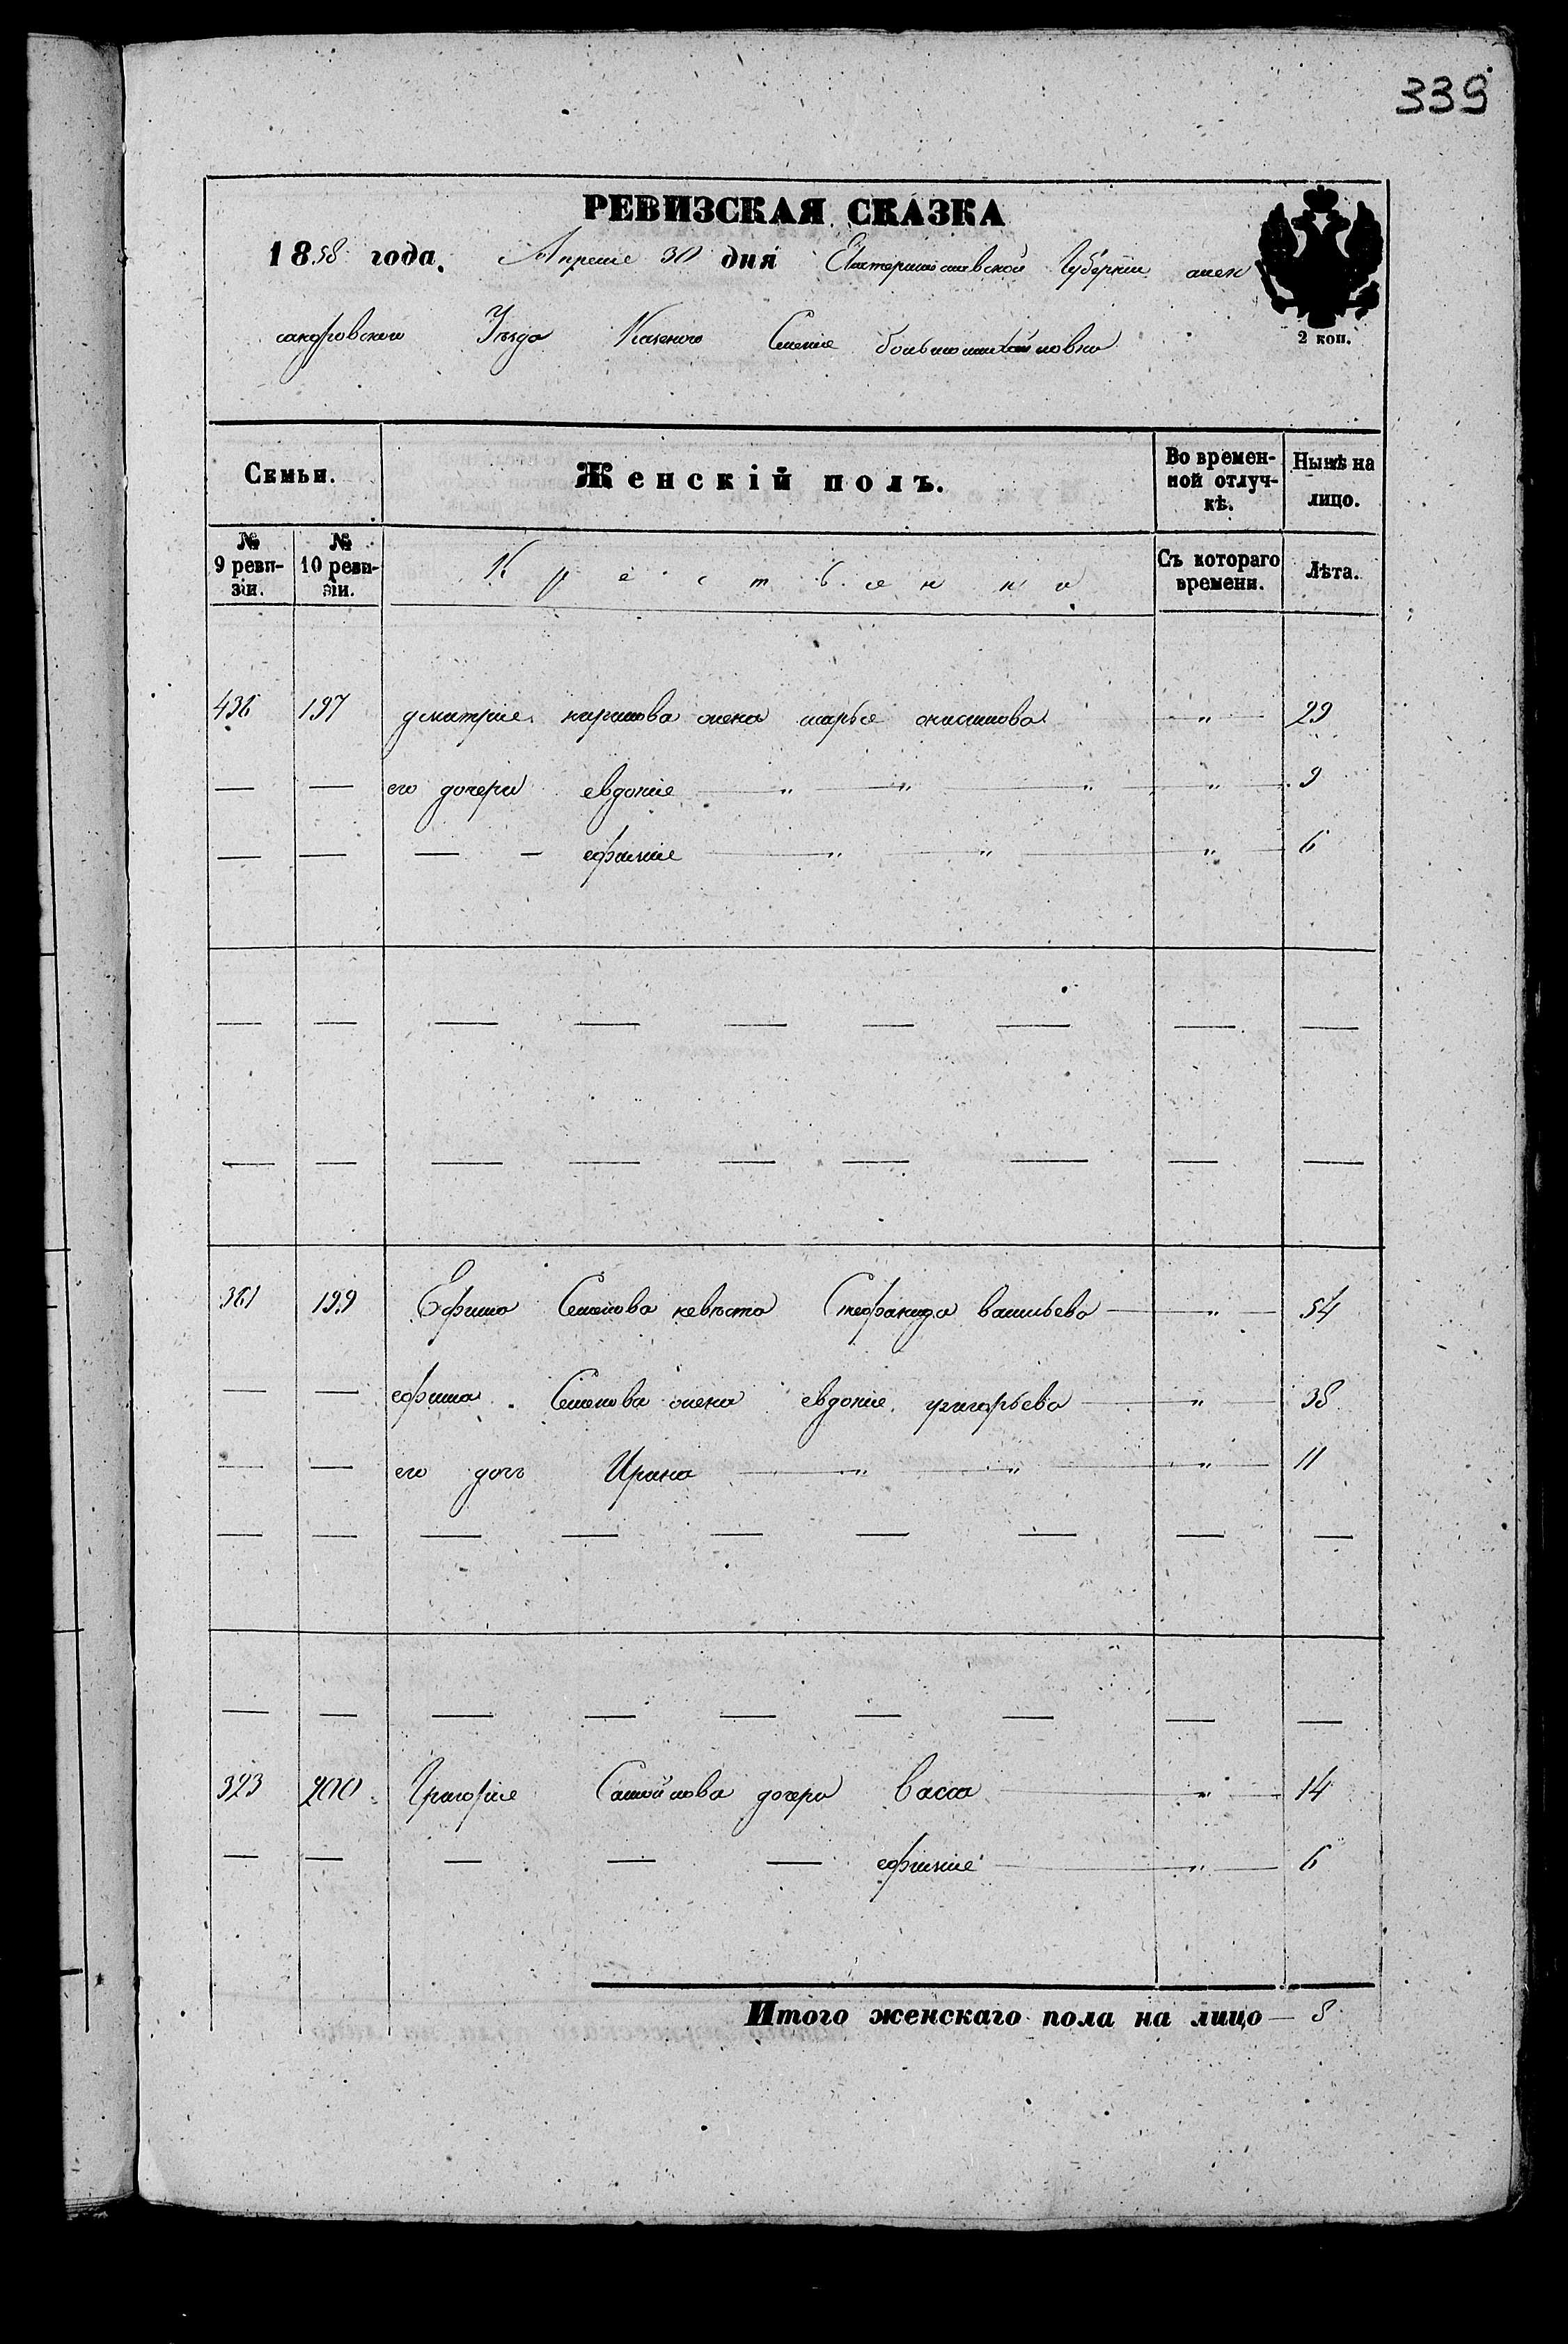 339
РЕВИЗСКАЯ СКАЗКА
1858 года. Апреле 30 дня Екатеринославской Губернии алек
сандровского Уезда Казеного Селеніе большомихайловка
2 коп.
Семьи. Женскій полъ. Во времен-ной отлуч-кѣ. Нынѣ на лицо.
№ 9 реви-зіи. № 10 реви-зіи. Крестьенки Съ котораго времени. Лѣта.
436 197 дмитрие кирилова жена марье онисимова — " — 29
— — его дочери евдокие — " — " — " — " — 9
— — — — ефимие — " — " — " — 6
— — — — — — — — —
— — — — — — — — —
361 199 Ефима Семенова невѣста Стефанида васильева — " — 54
— — ефима Семенова жена евдокие григорьева — " — 38
— — его дочь Ирина — " — " — " — 11
— — — — — — — — —
— — — — — — — — —
323 200 Григорие Самойлова дочери васса — " — 14
— — — — — ефимие — " — 6
Итого женскаго пола на лицо — 8